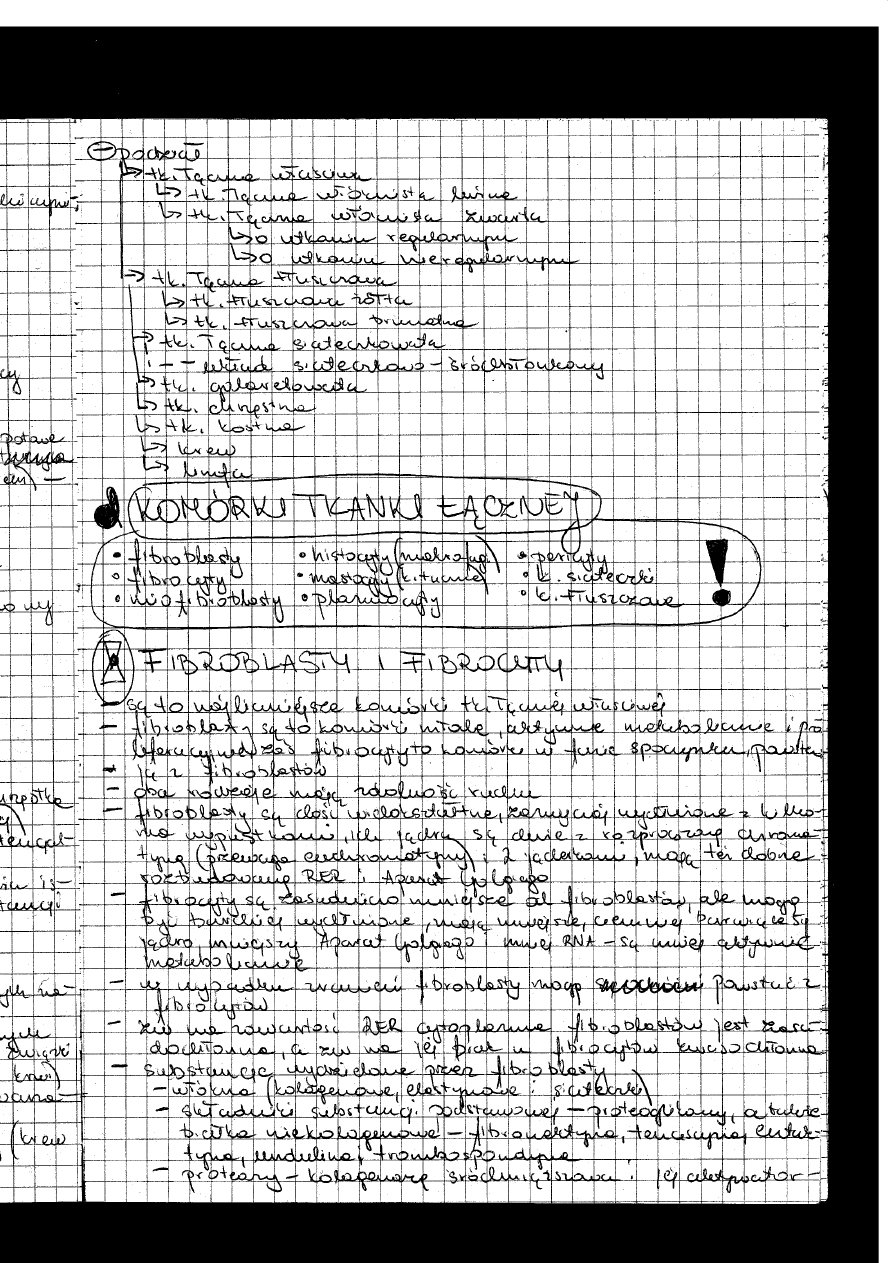 podział
↳ tk. łączna właściwa
↳ tk. łączna włóknista luźna
↳ tk. łączna włóknista zwarta
↳ o utkaniu regularnym
↳ o utkaniu nieregularnym
→ tk. łączna tłuszczowa
↳ tk. tłuszczowa żółta
↳ tk. tłuszczowa brunatna
→ tk. łączna siateczkowata
-- układ siateczkowo-śródbłonkowy
→ tk. galaretowata
↳ tk. chrzęstna
↳ tk. kostna
↳ krew
↳ limfa
KOMÓRKI TKANKI ŁĄCZNEJ
• fibroblasty • histiocyty (makrofagi) • perycyty
• fibrocyty • mastocyty (k. tuczne) • k. siateczki
• miofibroblasty • plazmocyty • k. tłuszczowe
!
FIBROBLASTY I FIBROCYTY
- są to najliczniejsze komórki tk. łącznej właściwej
- fibroblasty są to komórki młode, aktywne metabolicznie i pro
liferacyjnie, zaś fibrocyty to komórki w fazie spoczynku, powsta
ją z fibroblastów
- oba rodzaje mają zdolność ruchu
- fibroblasty są dość wielokształtne, zazwyczaj wydłużone z kilko-
ma wypustkami, ich jądra są duże z rozproszoną chroma-
tyną (przewaga euchromatyny) i 2 jąderkami, mają też dobrze
rozbudowany RER i Aparat Golgiego
- fibrocyty są zasadniczo mniejsze od fibroblastów, ale mogą
być bardziej wydłużone, mają mniejsze, ciemniej barwiące się
jądro, mniejszy Aparat Golgiego i mniej RNA - są mniej aktywne
metabolicznie
- w wypadku zranień fibroblasty mogą powstać z
fibrocytów
- zw na zawartość RER cytoplazma fibroblastów jest zasa-
dochłonna, a zw na jej brak u fibrocytów kwasochłonna
- substancje wydzielane przez fibroblasty
- włókna (kolagenowe, elastynowe i siateczki)
- składniki substancji podstawowej - proteoglikany, a także
białka niekolagenowe - fibronektyna, tenascyna, entak-
tyna, undulina, trombospondyna
- proteazy - kolagenazę śródmiąższową i jej aktywator-